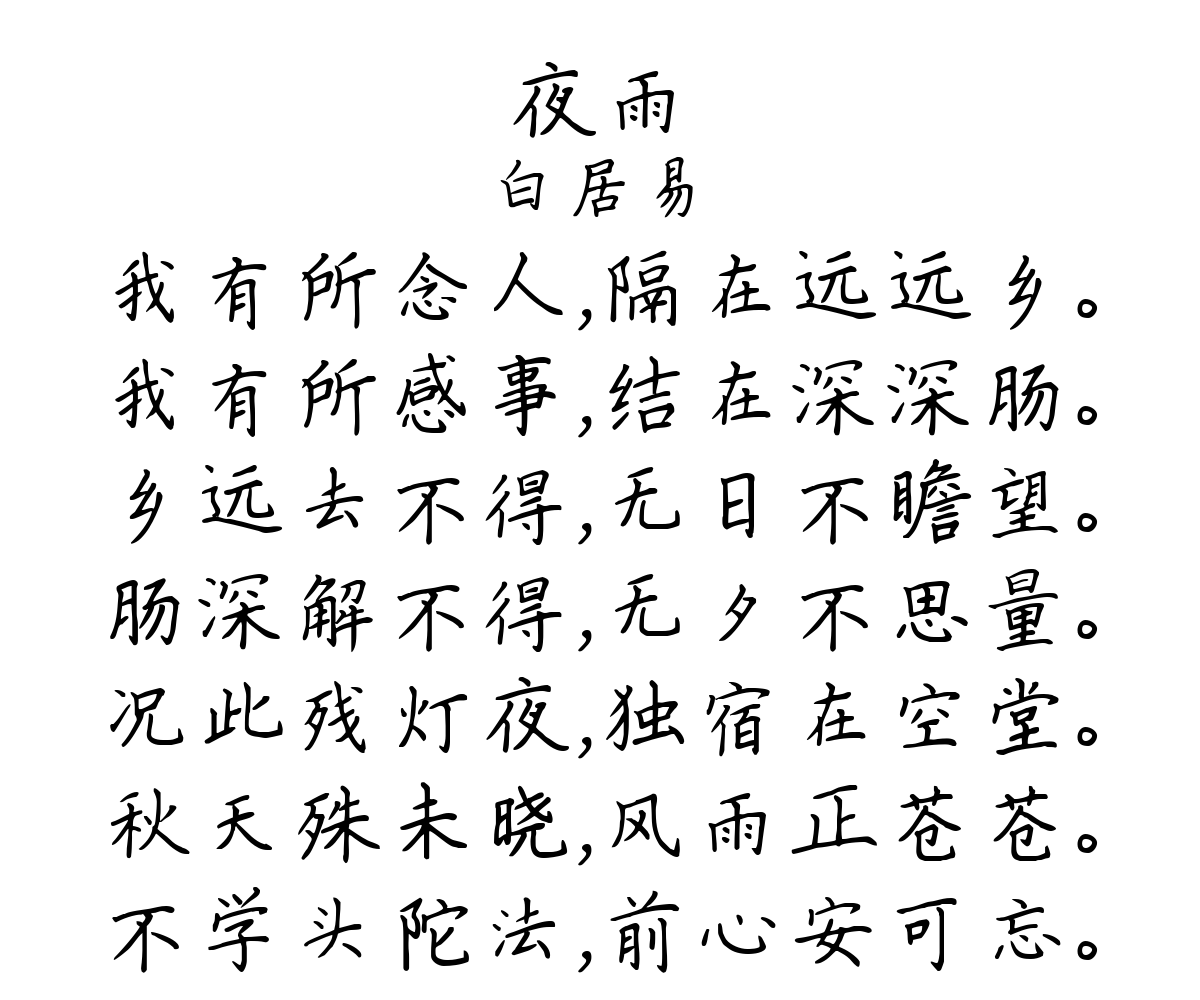 夜雨
白居易
我有所念人,隔在远远乡。
我有所感事,结在深深肠。
乡远去不得,无日不瞻望。
肠深解不得,无夕不思量。
况此残灯夜,独宿在空堂。
秋天殊未晓,风雨正苍苍。
不学头陀法,前心安可忘。